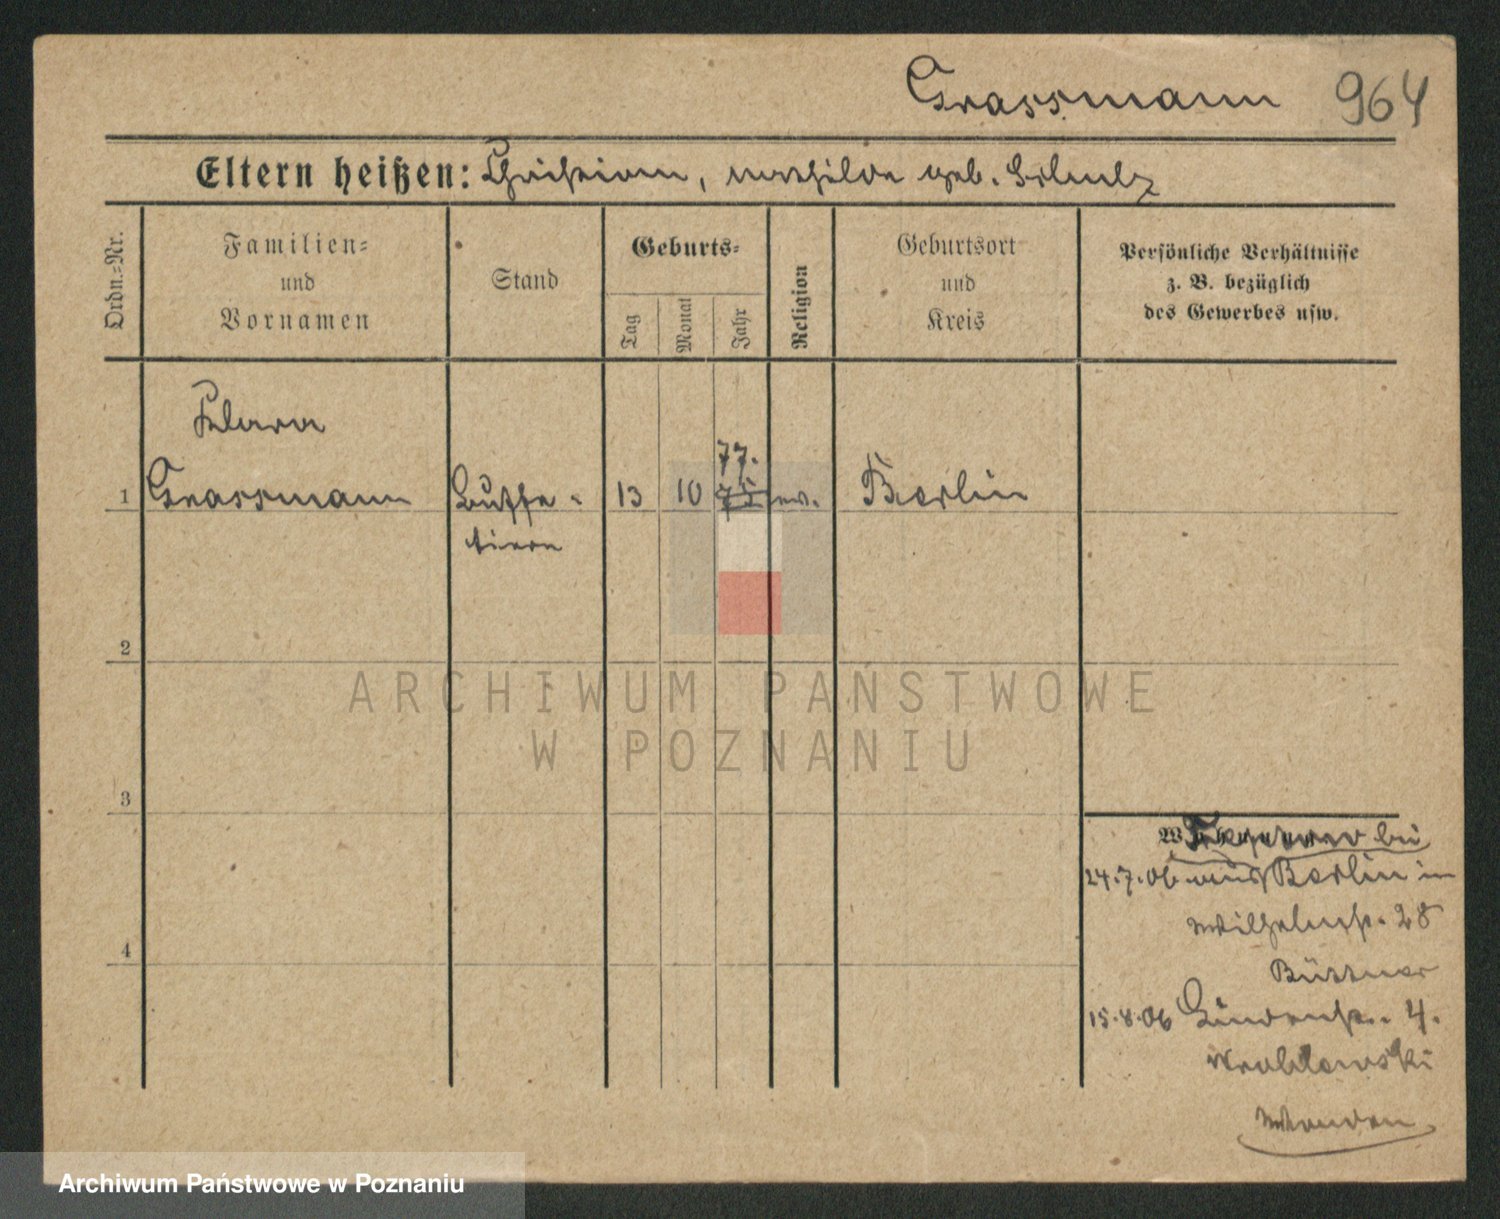 Grassmann 964
Eltern heißen: Christian, Mathilde geb. Schulz
Ordn.-Nr.
Familien-
und
Vornamen
Stand
Geburts-
Tag
Monat
Jahr
Religion
Geburtsort
und
Kreis
Persönliche Verhältnisse
z. B. bezüglich
des Gewerbes usw.
Klara
77.
1 Grassmann Buffe- 13 10 75 ev. Berlin
tiere
2
ARCHIWUM PAŃSTWOWE
W POZNANIU
3
bei
24.7.06 aus Berlin in
Wilhelmstr. 28
Büttner
4
15.8.06 Lindenstr. 4.
Wroblewski
Wenden
Archiwum Państwowe w Poznaniu